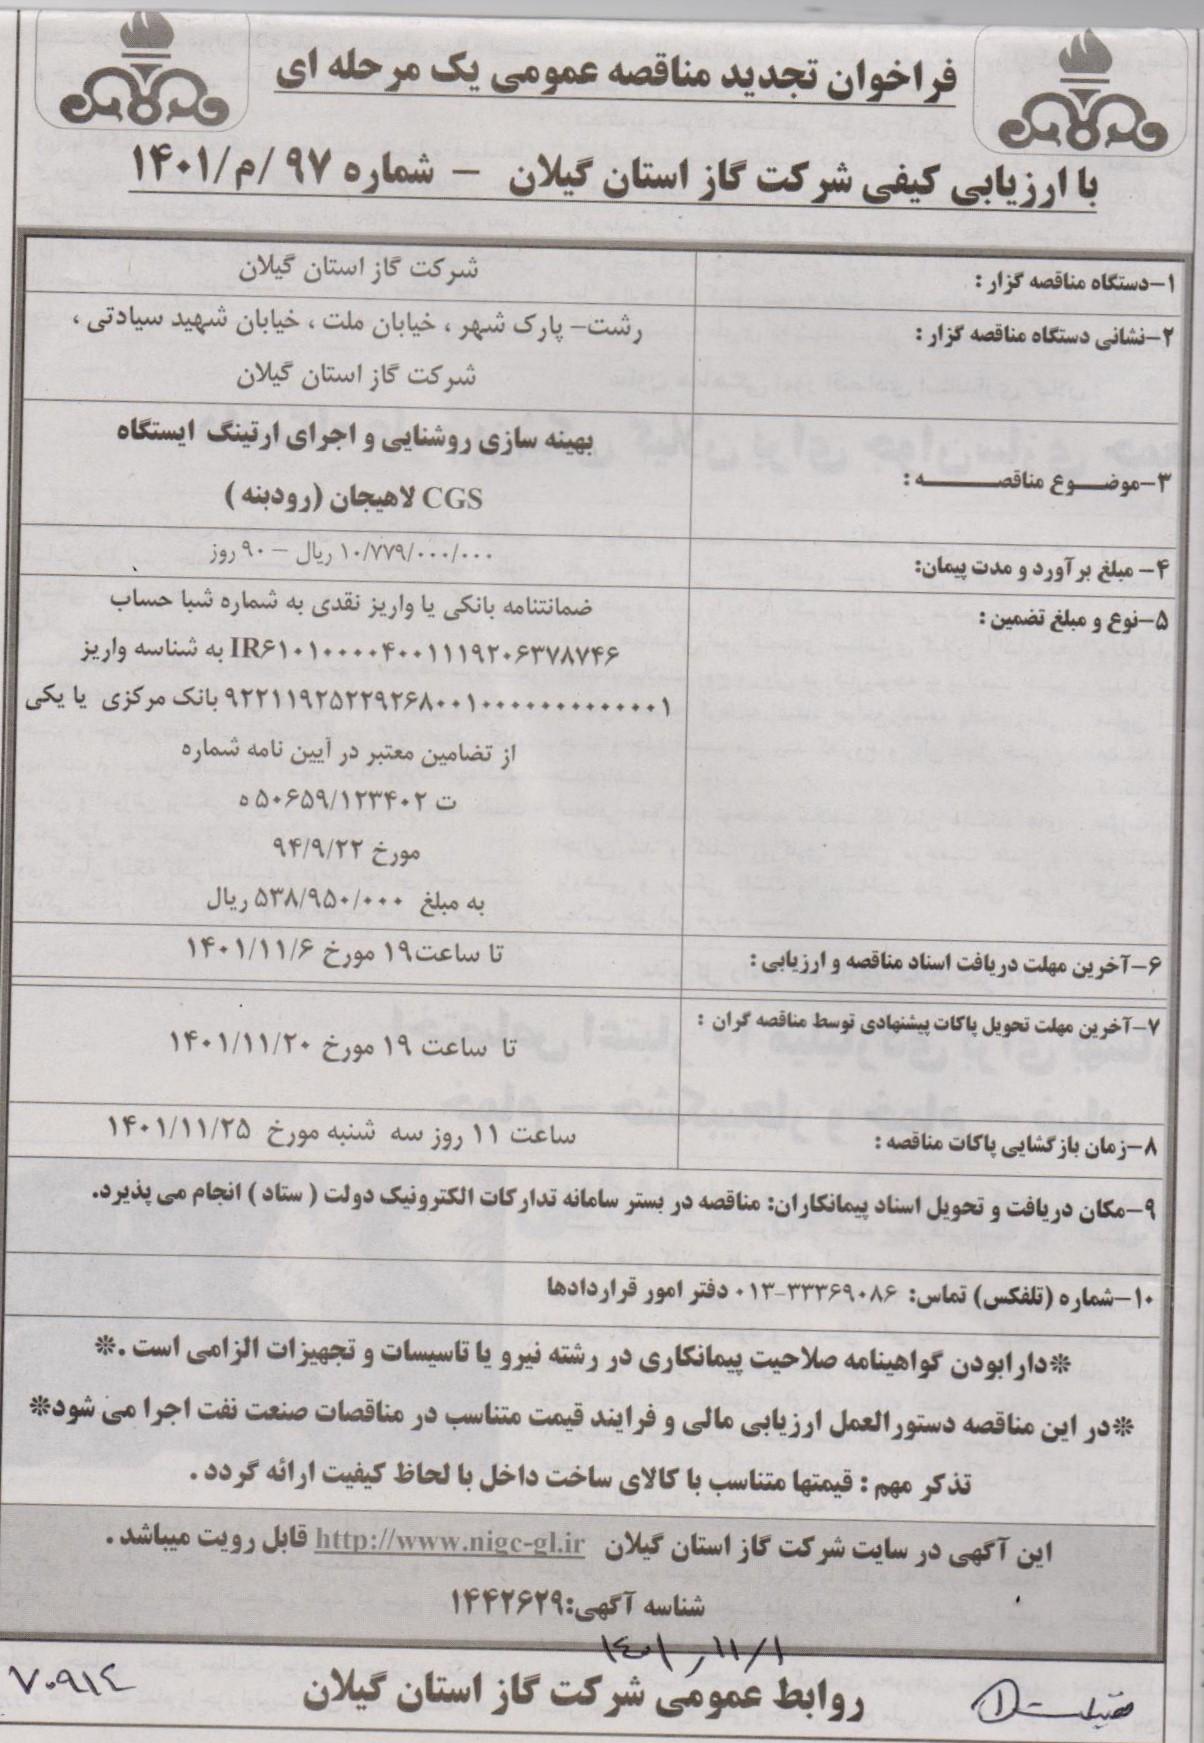 فراخوان تجدید مناقصه عمومی یک مرحله ای
با ارزیابی کیفی شرکت گاز استان گیلان – شماره ۹۷ /م/۱۴۰۱
۱–دستگاه مناقصه گزار :
شرکت گاز استان گیلان
۲–نشانی دستگاه مناقصه گزار :
رشت– پارک شهر ، خیابان ملت ، خیابان شهید سیادتی ،
شرکت گاز استان گیلان
۳–موضوع مناقصه :
بهینه سازی روشنایی و اجرای ارتینگ ایستگاه
CGS لاهیجان (رودبنه )
۴– مبلغ برآورد و مدت پیمان:
۱۰/۷۷۹/۰۰۰/۰۰۰ ریال – ۹۰ روز
۵–نوع و مبلغ تضمین :
ضمانتنامه بانکی یا واریز نقدی به شماره شبا حساب
IR۶۱۰۱۰۰۰۰۴۰۰۱۱۱۹۲۰۶۳۷۸۷۴۶ به شناسه واریز
۹۲۲۱۱۹۲۵۲۲۹۲۶۸۰۰۱۰۰۰۰۰۰۰۰۰۰۰۰۰۱ بانک مرکزی یا یکی
از تضامین معتبر در آیین نامه شماره
ت ۵۰۶۵۹/۱۲۳۴۰۲ ه
مورخ ۹۴/۹/۲۲
به مبلغ ۵۳۸/۹۵۰/۰۰۰ ریال
۶–آخرین مهلت دریافت اسناد مناقصه و ارزیابی :
تا ساعت۱۹ مورخ ۱۴۰۱/۱۱/۶
۷–آخرین مهلت تحویل پاکات پیشنهادی توسط مناقصه گران :
تا ساعت ۱۹ مورخ ۱۴۰۱/۱۱/۲۰
۸–زمان بازگشایی پاکات مناقصه :
ساعت ۱۱ روز سه شنبه مورخ ۱۴۰۱/۱۱/۲۵
۹–مکان دریافت و تحویل اسناد پیمانکاران: مناقصه در بستر سامانه تدارکات الکترونیک دولت ( ستاد ) انجام می پذیرد.
۱۰–شماره (تلفکس) تماس: ۳۳۳۶۹۰۸۶–۰۱۳ دفتر امور قراردادها
❊دارابودن گواهینامه صلاحیت پیمانکاری در رشته نیرو یا تاسیسات و تجهیزات الزامی است .❊
❊در این مناقصه دستورالعمل ارزیابی مالی و فرایند قیمت متناسب در مناقصات صنعت نفت اجرا می شود❊
تذکر مهم : قیمتها متناسب با کالای ساخت داخل با لحاظ کیفیت ارائه گردد .
این آگهی در سایت شرکت گاز استان گیلان http://www.nigc-gl.ir قابل رویت میباشد .
شناسه آگهی:۱۴۴۲۶۲۹
۱۴۰۱ر۱۱/۱
روابط عمومی شرکت گاز استان گیلان
۷۰۹۱٤